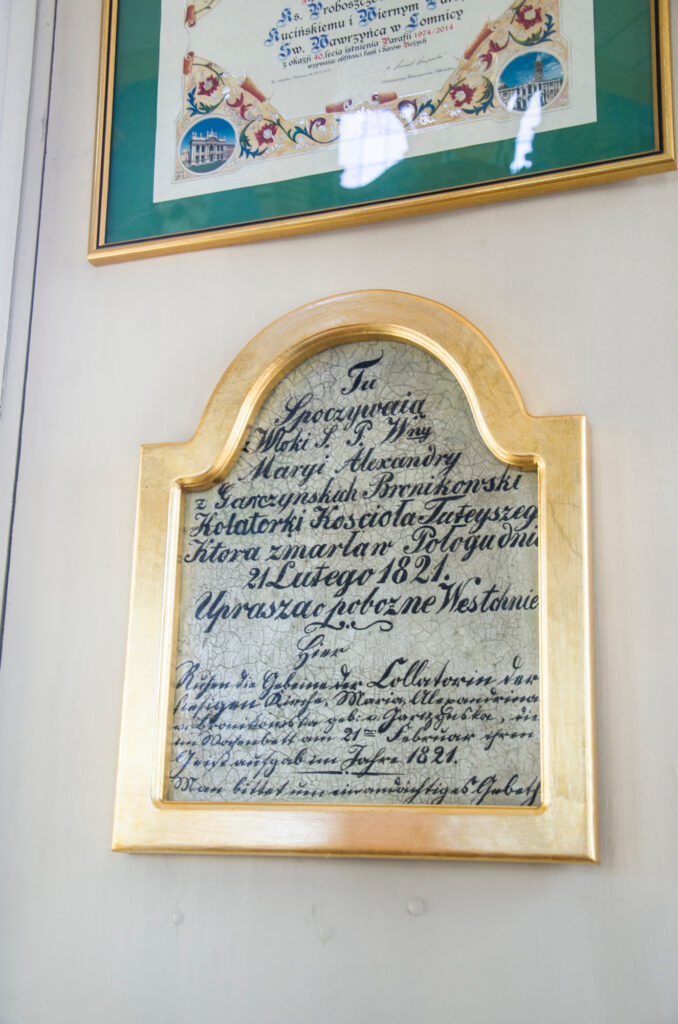 Ks. Proboszczo
Kucińskiemu i Wiernym
Św. Wawrzyńca w Łomnicy
z okazji 40.lecia istnienia Parafii 1974/2014
wzywając obfitości łask i darów Bożych
Tu
Spoczywaią
Zwłoki S. P. Wny
Maryi Alexandry
z Garczynskich Bronikowski
Kolatorki Kościoła Tuteyszeg
Ktora zmarła w Pologu dnia
21 Lutego 1821.
Uprasza o pobożne Westchnie
Hier
Ruhen die Gebeine der Collatorin der
hiesigen Kirche, Maria Alexandrina
v. Bronikowska geb: v. Garczynska, die
im Wochenbett am 21ten Februar ihren
Geist aufgab im Jahre 1821.
Man bittet um ein andächtiges Gebeth